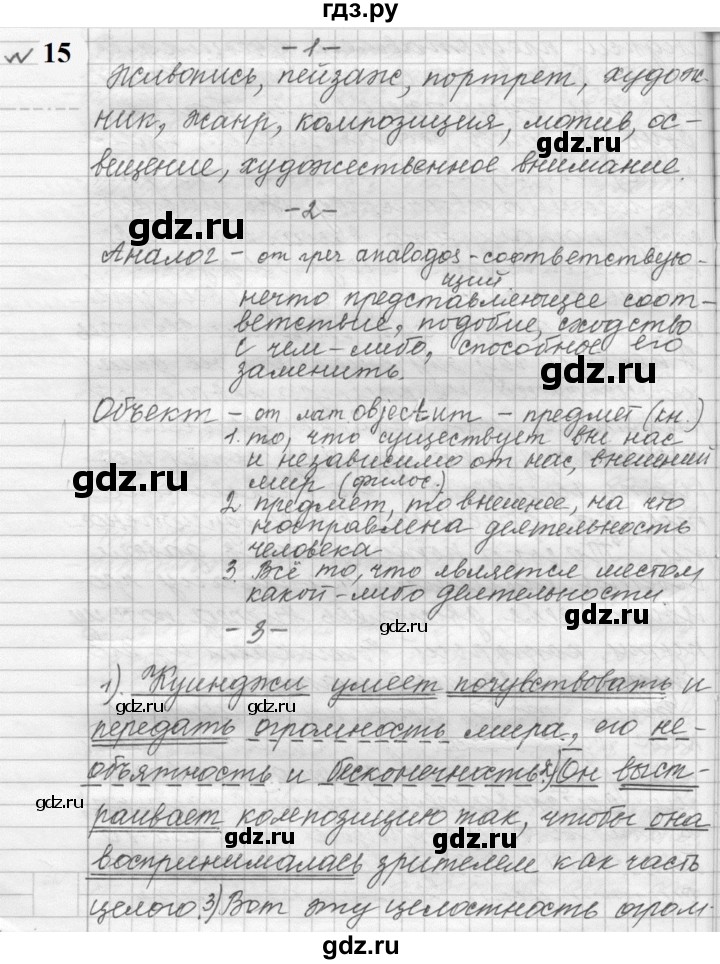 гдз.ру
№ 15
-1-
Живопись, пейзаж, портрет, худож-
ник, жанр, композиция, мотив, ос-
gdz.ru
вещение, художественное внимание.
-2-
gdz.ru
Аналог - от греч analogos - соответствую-
щий.
нечто представляющее соот-
ветствие, подобие, сходство
с чем-либо, способное его
заменить.
gdz.ru
Объект - от лат objectum - предмет (кн.)
1. то, что существует вне нас
и независимо от нас, внешний
мир (филос.)
gdz.ru
2 предмет, то внешнее, на что
направлена деятельность
человека
3. Всё то, что является местом
какой-либо деятельности
gdz.ru
gdz.ru
-3-
1). Куинджи умеет почувствовать и
gdz.ru
gdz.ru
передать огромность мира, его не-
объятность и бесконечность. 2) Он выст-
gdz.ru
раивает композицию так, чтобы она
gdz.ru
gdz.ru
воспринималась зрителем как часть
целого. 3) Вот эту целостность огром-
gdz.ru